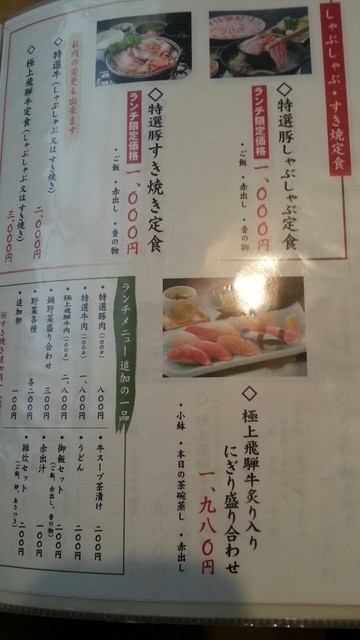 しゃぶしゃぶ・すき焼き定食
◇特選豚しゃぶしゃぶ定食
ランチ限定価格 一、〇〇〇円
・ご飯 ・赤出し ・香の物
◇特選豚すき焼き定食
ランチ限定価格 一、〇〇〇円
・ご飯 ・赤出し ・香の物
お肉の変更も出来ます
◇特選牛(しゃぶしゃぶ又はすき焼き)
二、〇〇〇円
◇極上飛騨牛定食(しゃぶしゃぶ又はすき焼き)
三、〇〇〇円
◇極上飛騨牛炙り入り
にぎり盛り合わせ
一、九八〇円
・小鉢 ・本日の茶碗蒸し ・赤出し
ランチメニュー 追加の一品
・特選豚肉(100g) 八〇〇円
・特選牛肉(100g) 一、八〇〇円
・極上飛騨牛肉(100g) 二、八〇〇円
・鍋野菜盛り合わせ 三〇〇円
・野菜各種 各二〇〇円
・追加卵 一〇〇円
・牛スープ茶漬け 二〇〇円
・うどん 二〇〇円
・御飯セット 二〇〇円
(ご飯、赤出し、香の物)
・赤出汁 一〇〇円
・雑炊セット 二〇〇円
(ご飯、卵、あさつき)
※すき焼き